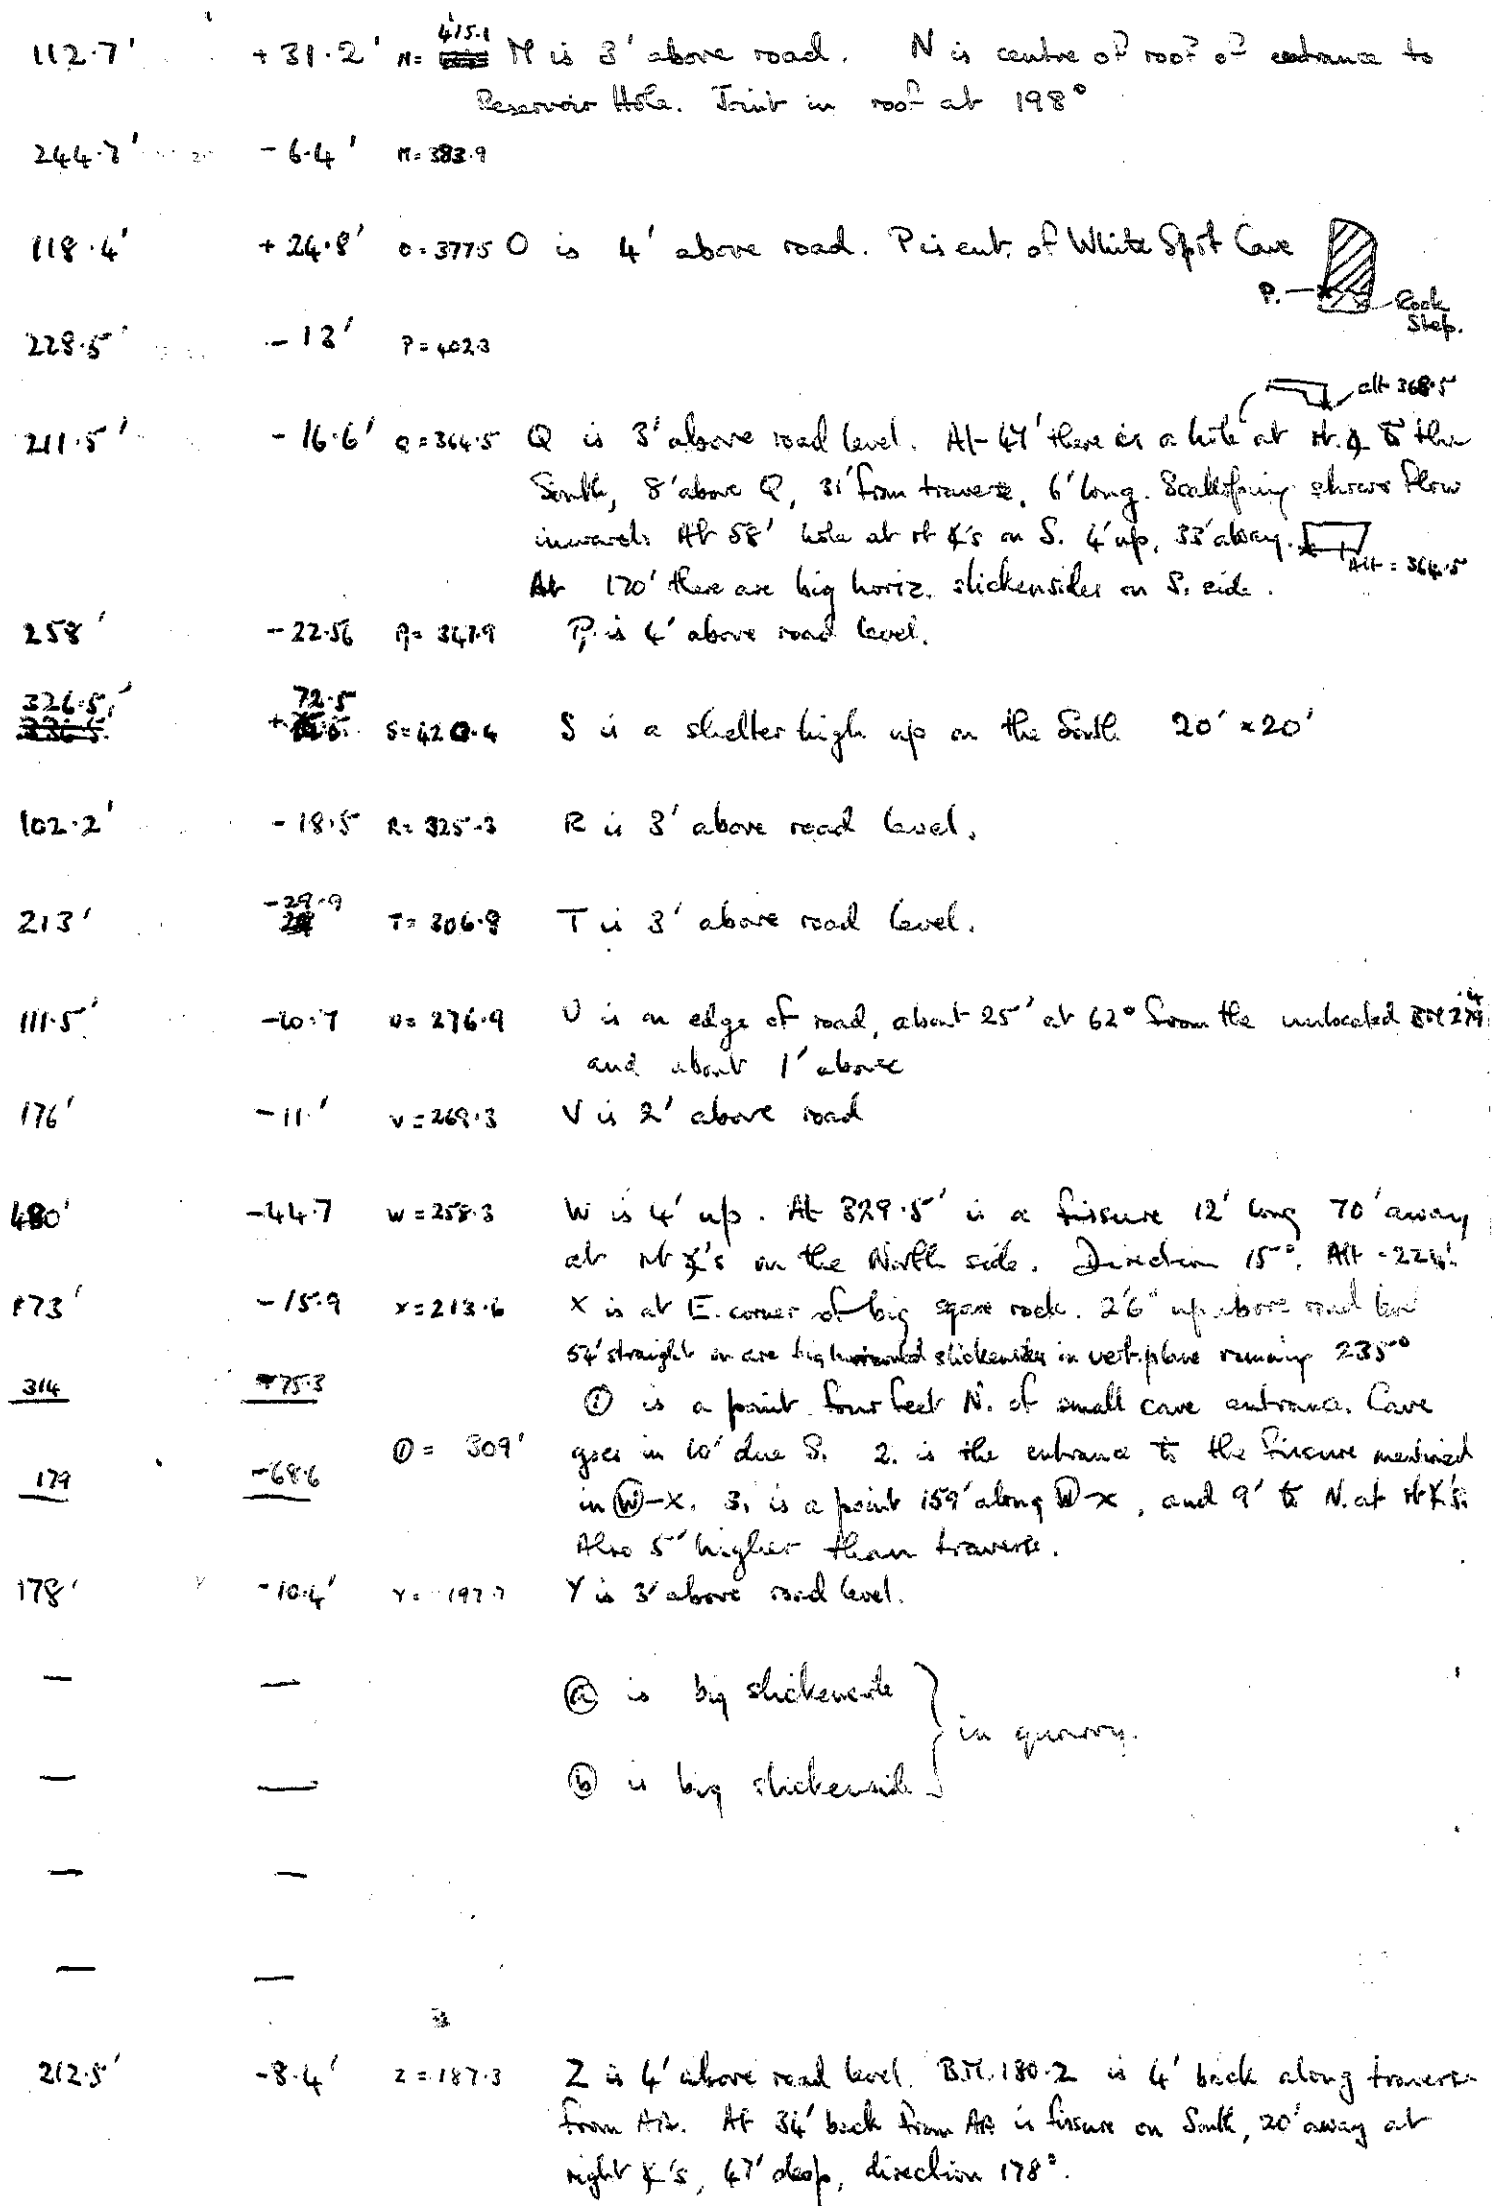 112.7' +31.2' N= 415.1 M is 3' above road. N is centre of roof of entrance to
Reservoir Hole. Joint in roof at 198°
244.7' -6.4' M=383.9
118.4' +24.8' O=377.5 O is 4' above road. P is ent. of White Spot Cave
P. Rock
Step.
228.5' -13' P=402.3
alt 368.5
211.5' -16.6' Q=364.5 Q is 3' above road level. At 47' there is a hole at rt. ∡ to the
South, 8' above Q, 31' from traverse, 6' long. Scalloping shows flow
inwards At 58' hole at rt ∡'s on S. 4' up, 33' away.
Alt = 364.5
At 170' there are big horiz. slickensides on S. side.
258' -22.56 P₁= 347.9 P₁ is 4' above road level.
326.5' +72.5 S=420.4 S is a shelter high up on the South 20' x 20'
102.2' -18.5 R=325.3 R is 3' above road level.
213' -29.9 T=306.8 T is 3' above road level.
111.5' -10.7 U=276.9 U is on edge of road, about 25' at 62° from the unlocated BM
and about 1' above
176' -11.' V=269.3 V is 2' above road
480' -44.7 W=258.3 W is 4' up. At 329.5' is a fissure 12' long 70' away
at rt ∡'s on the North side. Direction 15°. Alt = 224'.
173' -15.9 X=213.6 X is at E. corner of big square rock. 2'6" up above road level
54' straight on are big horizontal slickensides in vert. plane running 235°
314 +75.3 ① is a point four feet N. of small cave entrance. Cave
①= 309' goes in 10' due S. 2. is the entrance to the fissure mentioned
179 -68.6 in Ⓦ-X. 3. is a point 159' along Ⓦ-X, and 9' to N. at rt ∡'s.
Also 5' higher than traverse.
178' -10.4' Y= 197.7 Y is 3' above road level.
— — ⓐ is big slickenside
in quarry.
— — ⓑ is big slickenside
— —
— —
212.5' -8.4' Z=187.3 Z is 4' above road level. B.M. 180.2 is 4' back along traverse
from AA. At 34' back from AA is fissure on South, 20' away at
right ∡'s, 47' deep, direction 178°.